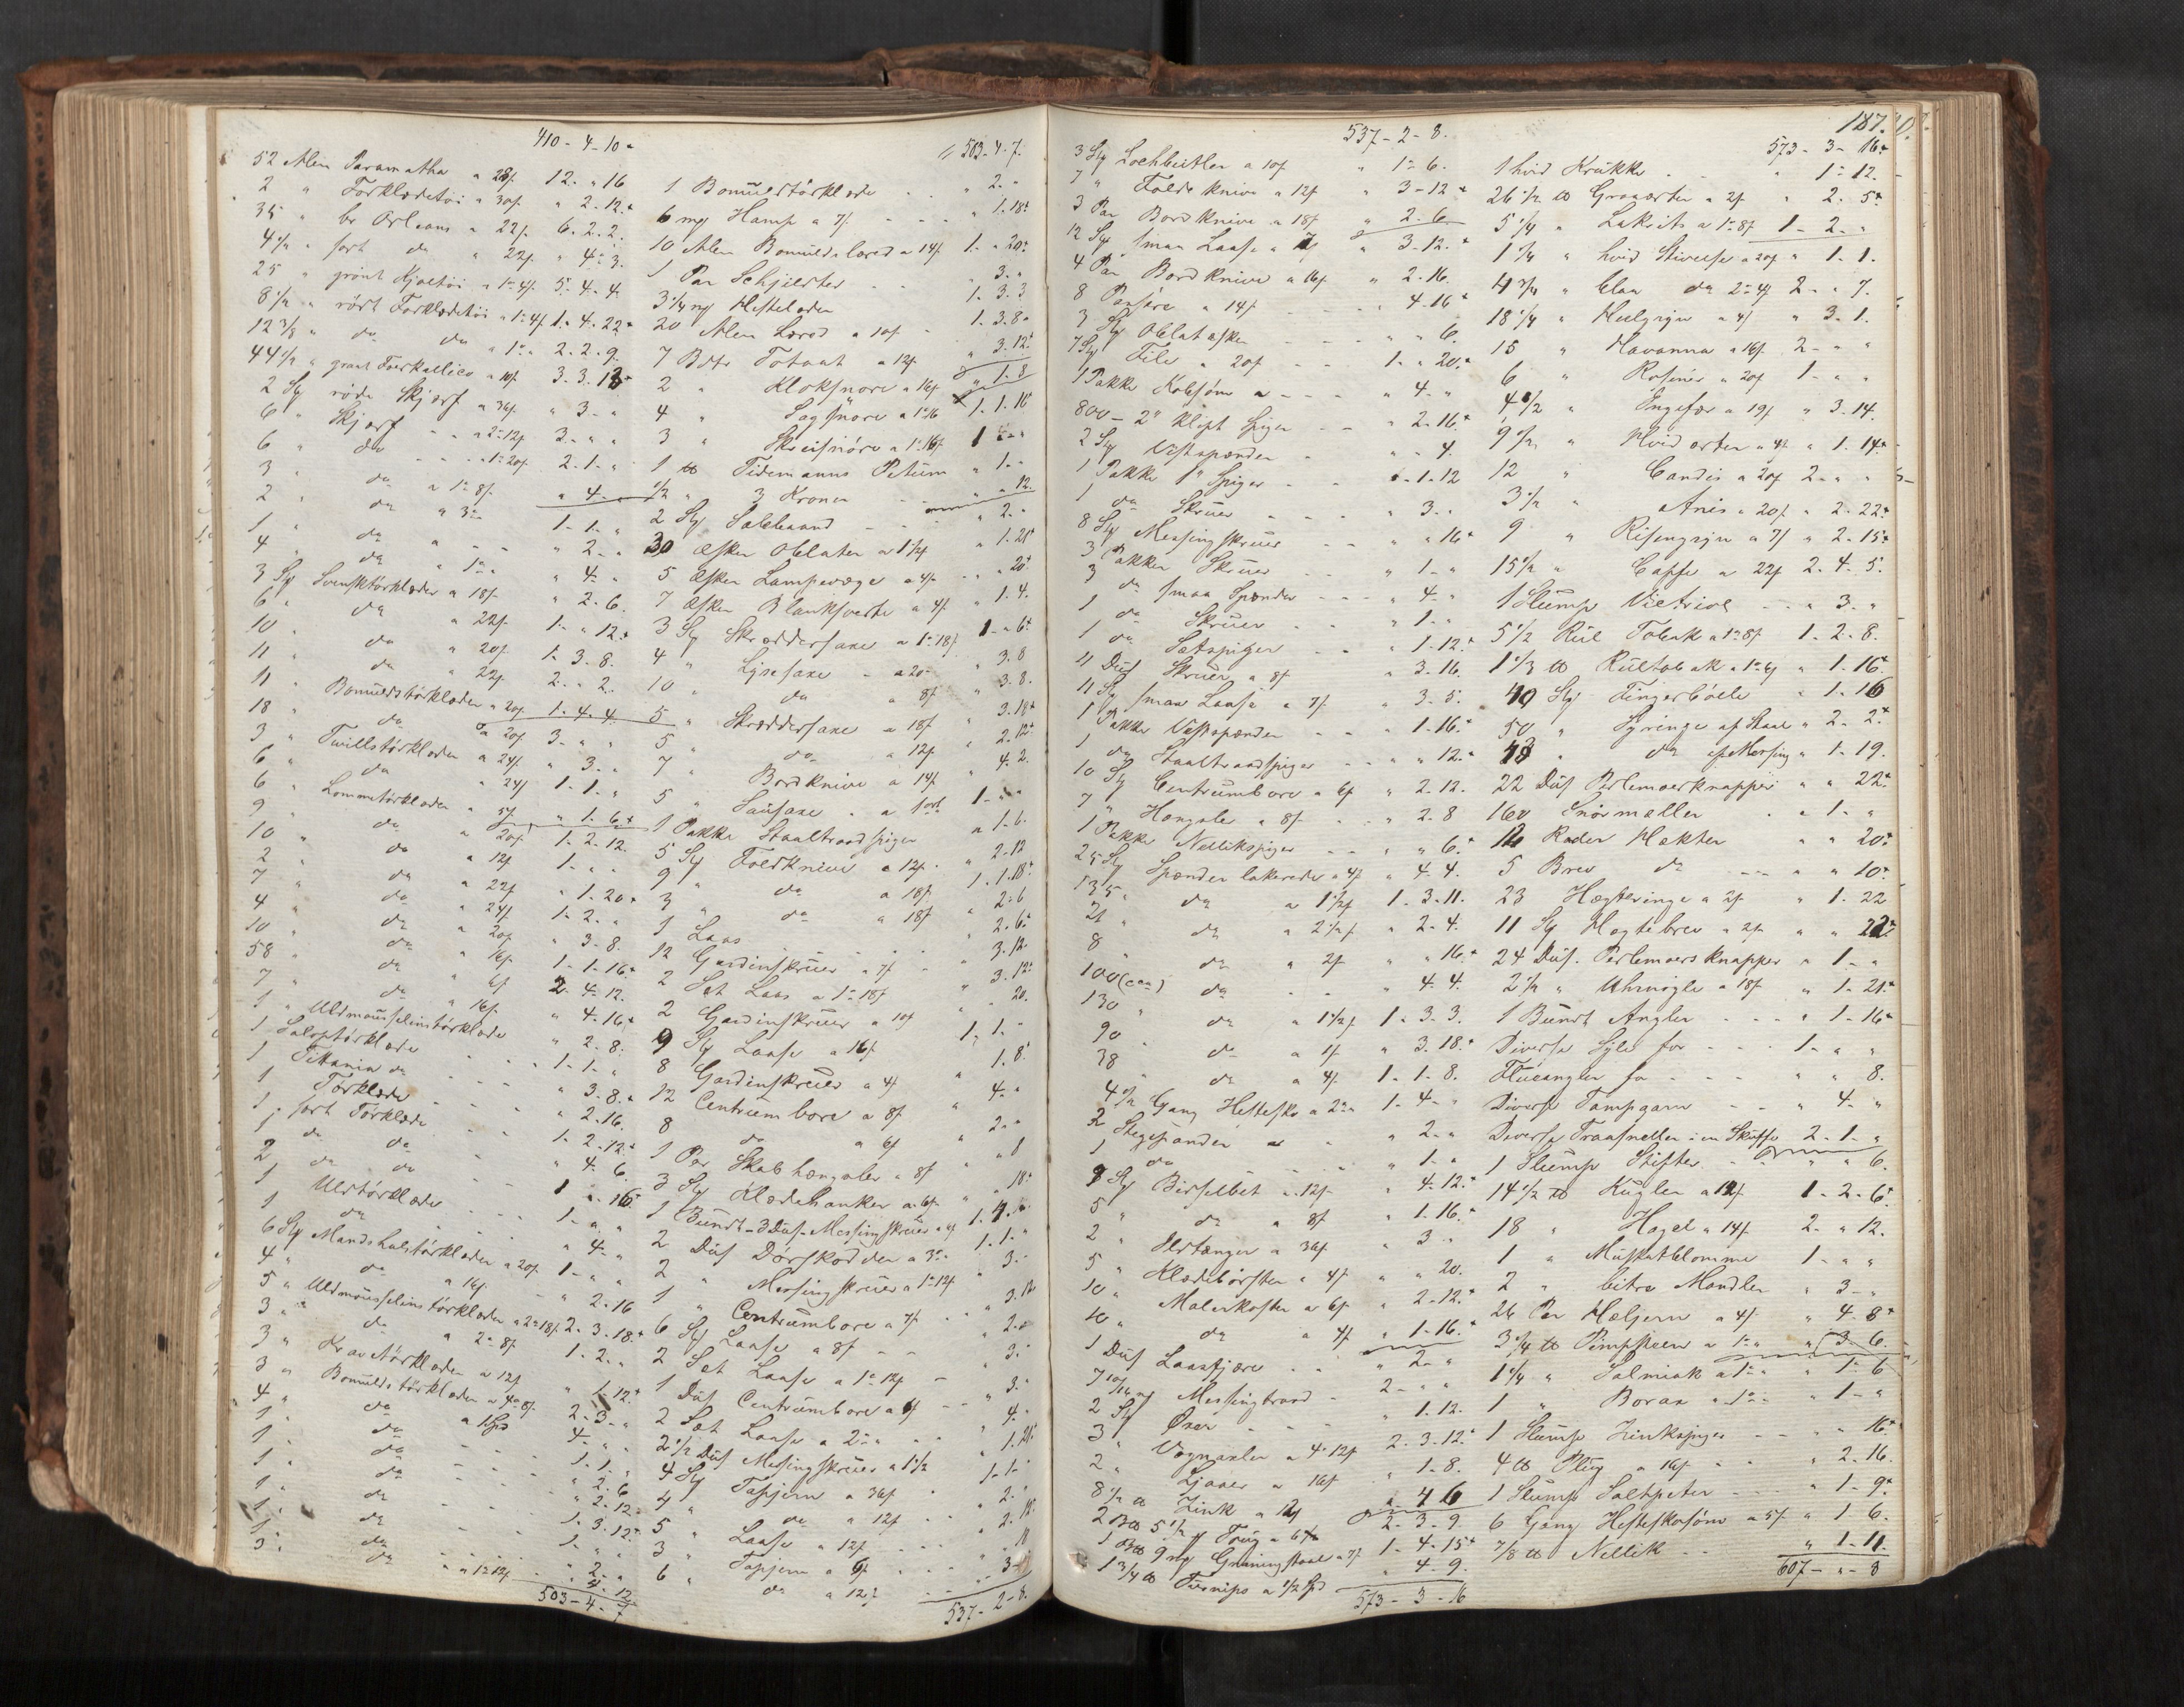 410-4-10
52 Alen Paramatha a 28f. 12 - " 16
2 " Forklædetøi a 30f. " 2-12.
35 " br Orleans a 22f. 6. 2. 2.
4 1/2 " sort do " 22f. " 4 - 3.
25 " grönt Kjoletøi a 1-4f. 5. 4. 4
8 1/2 " rödt Forklædetøi a 1-4f 1. 4. 22
12 3/8 " do do " 1- " 2. 2. 9.
44 1/2 " grönt Foerkallico a 10f. 3. 3. 13
2 Stk röde Skjærf a 36f. " 3 - "
6 " Skjærf - - a 2-12f 3 - " "
6 " do - - - 1-20f. 2. 1. "
3 " do a 1-8f. " 4 - "
2 " do a 3- 1 - 1 - "
1 " do a - - " 2 - "
4 " do " 1- " 4 - "
3 Stk Svensktörklæder a 18f. " 2. 6.
6 " do " 22f. 1 - " 12.
10 " do " 20f. 1. 3. 8.
11 " do " 22f. 2. " 2.
11 " Bomuldstörklæder a 20f. 1. 4. 4.
18 " do a 20f 3 - " "
3 " Twillstörklæder a 24f. " 3 - "
6 " do " 24f 1 - 1 - "
6 " Lommetörklæder a 5f. " 1. 6.
9 " do a 20f. 1. 2. 12.
10 " do a 12f 1 - " "
2 " do a 22f " 1. 20
7 " do a 24f 1 - 2 - "
4 " do a 20f " 3 - 8.
10 " do a 16f. 1 - 1 - 16.
58 " do " 6f 2. 4. 12.
7 " do a 16f. " 4. 16.
1 " Uldmousselinstörklæde " 2. 8.
1 Salopstörklæde - - 1 - 1 - "
1 Titania do - - - " 3. 8.
1 Törklæde - - - " 2. 16.
1 sort Törklæde - - 1. 2. 12.
1 do do " 4. 6.
2 do do 1 " 16
1 Uldtörklæde - - - 1 - " "
1 do " 4 - "
6 Stk Mandshalstörklæder a 20f. 1 - " "
4 " do a 16f. " 2. 16
5 " Uldmousselinstörklæder a 2-18f. 2. 3. 18.
3 " do a 2-8f 1. 2. "
3 " Kravetörklæder a 12f " 1. 12
3 " Bomuldstörklæder a 4-8f. 2. 3 - "
4 " do a 1Spd 4 - " "
1 " do - - - 1. 1. "
1 " do - - " 2. 6
1 " do - - " 2. 12
1 " do - - 1. 3. 12
1 " do - - 1 - " "
1 " do " 2 - "
3 " do " a 1-12f " 4. 12
503-4-7
503-4-7.
1 Bomuldstörklæde - " 2 - "
6 mg Hamp a 7f. - - - " 1. 18
10 Alen Bomuldslæred a 14f. 1. " 20
1 Par Schjæfter - - " 3. "
3 1/4 mg Hestelæder 1. 3. 3
20 Alen Læred a 10f - 1. 3. 8
7 Bdtr Totaat a 12f " 3. 12
2 " Kloksnore a 16f " 1. 8
4 " Sagsnöre a 1-16 1. 1. 16
3 " Skreisnöre a 1-16f 1 - " "
1 ℔ Tidemanns Petum " 1 - "
1/2 " 3 Kroner - - " " 12.
2 Stk Salebaand - - " 2 - "
30 Æsker Oblater a 1 1/2f " 1. 21
5 Æsker Lampevæge a 4f. - " 20
7 Æsker Blanksverte a 4f " 1. 4.
3 Stk Skræddersaxe a 1-18f. 1 - " 6
4 " Lysesaxe - a 20 - " 3. 8
10 " do a 8f " 3. 8.
5 " Skræddersaxe a 18f " 3. 18
5 " do a 12f " 2. 12
7 " Bordknive a 14f " 4. 2.
5 " Sausaxe - a 1ort 1 - " "
1 Pakke Staaltraadspiger " 1. 6.
5 Stk Foldknive a 12f. - " 2. 12
9 " do a 18f 1. 1. 18
3 " do a 18f " 2. 6
1 Laas - - - - " 2. 6
12 Gardinskruer a 7f - " 3. 12
2 Sæt Laas a 1-18f " 3. 12
2 Gardinskruer a 10f " " 20.
9 Stk Laase a 16f 1. 1. "
8 Gardinskruer a 4f " 1. 8
12 Centrumbore a 8f " 4 - "
8 do a 6f " 2 - "
1 Par Skabhængsler a 8f " " 8
3 Stk Klædehanker a 6f " " 18
1 Bundt - 3 Dus - Messingskruer a 4f 1. 4. "
2 Dus Dørskodder a 3- 1. 1. "
2 " Messingskruer a 1-12f " 3. "
1 " Centrumbore a 7f " 3. 12
6 Stk Laase a 8f - - " 2 - "
2 Sæt Laase a 1-12f - " 3 - "
1 Dus Centrumbore a 6f - - " 3 - "
2 Sæt Laase a 2- - " 4. "
2 1/2 Dus Messingskruer a 1 1/2 " 1. 21
4 Stk Tapjern a 36f - 1. 1. "
4 " do a 12f - - " 2. "
5 " Laase a 12f - - " 2. 12
3 " Tapjern a 6f - - - " " 18
6 " do a 12f - - " 3 - "
537-2-8.
537-2-8.
3 Stk Lochbeitler a 10f " 1 - 6.
7 " Folde knive a 12f " 3 - 12
3 Par Bordknive a 18f " 2. 6
12 Stk smaa Laase a 7 " 3 - 12.
4 Par Bordknive a 16f. " 2. 16.
8 Pensere a 14f. - - - " 4. 16
3 Stk Oblatæsker - - - - " " 6
7 Stk File a 20f - - - - 1. " 20
1 Pakke Kobsöm a - - - " 4 - "
800 - 2" klipt Spiger - - " 2. 16.
2 Stk Vestspænder - - - " " 4.
1 Pakke 1" Spiger - - " 1. 12
1 do Skruer - - - " 3. "
8 Stk Messingskruer - - " " 16
3 Pakker Skruer - - " 1 - "
3 do smaa Spænder - - - " 4 - "
1 do Skruer - - " 1 - "
1 do Sætspiger - - " 1. 12.
11 Dus Skruer a 8f " 3. 16.
11 Stk smaa Laase a 7f " 3. 5.
1 Pakke Vestspænder - - - " 1. 16.
1 do Staaltraadspiger - - - " " 12.
10 Stk Centrumbore a 6f " 2. 12.
7 " Hængsle a 8f - - " 2. 8
1 Pakke Nellikspiger - - - " " 6.
25 Stk Spænder lakerede a 4f " 4. 4.
135 " do a 1 1/2f 1. 3. 11.
21 " do a 2 1/2f " 2. 4.
8 " do a 2f " " 16.
100 (cca) do - - " 4. 4.
130 " do a 1 1/2f 1. 3. 3.
90 " do a 1f " 3. 18.
38 " do a 4f 1. 1. 8.
4 1/2 Gang Hestesko a 2- " 1. 4. "
2 Stegepander a - - " 2. "
1 do - - - " 1 - "
9 Stk Bidselbet a 12f - " 4. 12.
5 " do a 8f " 1. 16.
2 " Ildtænger a 36f " 3 - "
5 " Klædebørster a 4f " " 20.
10 " Malerkoster a 6f " 2. 12.
10 " do a 4f " 1. 16.
1 Dus Laasfjære - - " 2 - "
7 10/16 mg Messingtraad - 2 - " "
2 Stk Øxer - - - " 1. 12.
3 " Vognaxler a 4-12f 2. 3. 12.
2 " Ljaaer a 16f " 1. 8.
8 1/2 ℔ Zink a 12f " 4 6
2 B℔ 5 1/2 mg Traug a 6f 2. 3. 9
1 B℔ 9 mg Gruningstaal a 7f 1. 4. 15
1 3/4 ℔ Turnips a 1/2 Spd " 4. 9.
573-3-16
187.
573-3-16.
1 hvid Krukke - - " 1 - 12.
26 1/2 ℔ Graaærter a 2f " 2. 5
5 1/4 " Lakrits a 1-8f 1 - 2 - "
1 1/4 " hvid Stivelse a 20f " 1. 1.
4 3/4 " blaa do 2-4f 2 - " 7.
18 1/4 " Helgryn a 4f " 3. 1.
15 " Havanna a 16f 2 - " "
6 " Rosiner a 20f 1 - " "
4 1/2 " Engefær a 19f " 3. 14.
9 1/2 " Hvid erter a 4f " 1. 14
12 " Candis a 20f 2 - " "
3 1/2 " Anis a 20f. " 2. 22
9 " Risengryn a 7f " 2. 15
15 1/2 " Caffe a 22f 2. 4. 5.
1 Slump Vietriol - - " 3. "
5 1/2 Rul Tobak a 1-8f 1. 2. 8.
1 1/3 ℔ Rultobak a 1-6f " 1. 16
40 Stk Fingerböll " 1. 16
50 " Syringe af Staal " 2. 2.
43 " do af Messing " 1. 19.
22 Dus Perlemoerknapper " " 22
160 Snörmaller - " 1 - "
12 Rader Hækter " " 20
5 Brev do - - - " " 10
23 Hægteringe a 2f " 1. 22
11 Stk Hægtebrev a 2f " " 22
24 Dus. Perlemoersknapper " 1 - "
2 1/2 " Uhrnøgle a 18f " 1. 21
1 Bundt Angler - - - " 1. 16
Diverse Syle for - - - 1 - " "
Flueangler for - - - " " 8.
Diverse Tampgarn - - " 4. "
Diverse Traasneller i en Skuffe 2. 1. "
1 Slump Stifter - - " " 6.
14 1/2 ℔ Kugler a 12f 1. 2. 6
18 " Hagel a 14f 2. " 12.
1 " Muskatblomme 1 - " "
2 " bitre Mandler " 3 - "
26 Par Hæljern a 4f " 4. 8
3 1/4 ℔ Pimpsteen a 1- " 3. 6.
1 1/4 " Salmiak a 1- " 1. 6
1 " Borax " 1- " 1 - "
1 Slump Zinkspiger - - - " " 16
4 ℔ Plug a 16f - - " 2. 16.
1 Slump Saltpeter - - - " 1. 9
6 Gang Hesteskosöm a 5f " 1. 6.
7/8 ℔ Nellik - - " 1. 11.
607 - " - 8